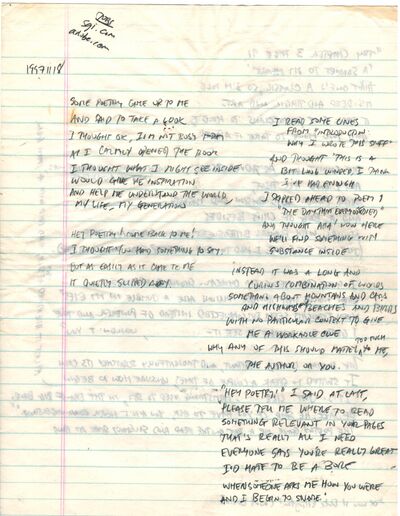 SGI.COM
adobe.com
19971118
SOME POETRY CAME UP TO ME
AND SAID TO TAKE A LOOK
I THOUGHT OK, I'M NOT BUSY
AS I CALMLY OPENED THE BOOK
I THOUGHT WHAT I MIGHT SEE INSIDE
WOULD GIVE ME INSTRUCTION
AND HELP ME UNDERSTAND THE WORLD,
MY LIFE, MY GENERATION
HEY POETRY! COME BACK TO ME!
I THOUGHT YOU HAD SOMETHING TO SAY.
BUT AS EASILY AS IT CAME TO ME
IT QUIETLY SLIPPED AWAY.
I READ SOME LINES
FROM "INTRODUCTION:
WHY I WROTE THIS STUFF"
AND THOUGHT "THIS IS A
BIT LONG WINDED, I THINK
I'VE HAD ENOUGH"
I SKIPPED AHEAD TO POEM 1
"THE DAY THAT
AND THOUGHT AHA! NOW HERE
WE'LL FIND SOMETHING WITH
SUBSTANCE INSIDE
INSTEAD IT WAS A LONG AND
CURIOUS COMBINATION OF WORDS
SOMETHING ABOUT MOUNTAINS AND CARS
AND HIGHWAYS BEACHES AND BIRDS
WITH NO PARTICULAR CONTEXT TO GIVE
ME A WORKABLE CLUE
WHY ANY OF THIS SHOULD MATTER TOO MUCH TO ME,
THE AUTHOR OR YOU.
"HEY POETRY!" I SAID AT LAST,
PLEASE TELL ME WHERE TO READ
SOMETHING RELEVANT IN YOUR PAGES
THAT'S REALLY ALL I NEED
EVERYONE SAYS YOU'RE REALLY GREAT
I'D HATE TO BE A BORE
WHEN SOMEONE ASKS ME HOW YOU WERE
AND I BEGIN TO SNORE"